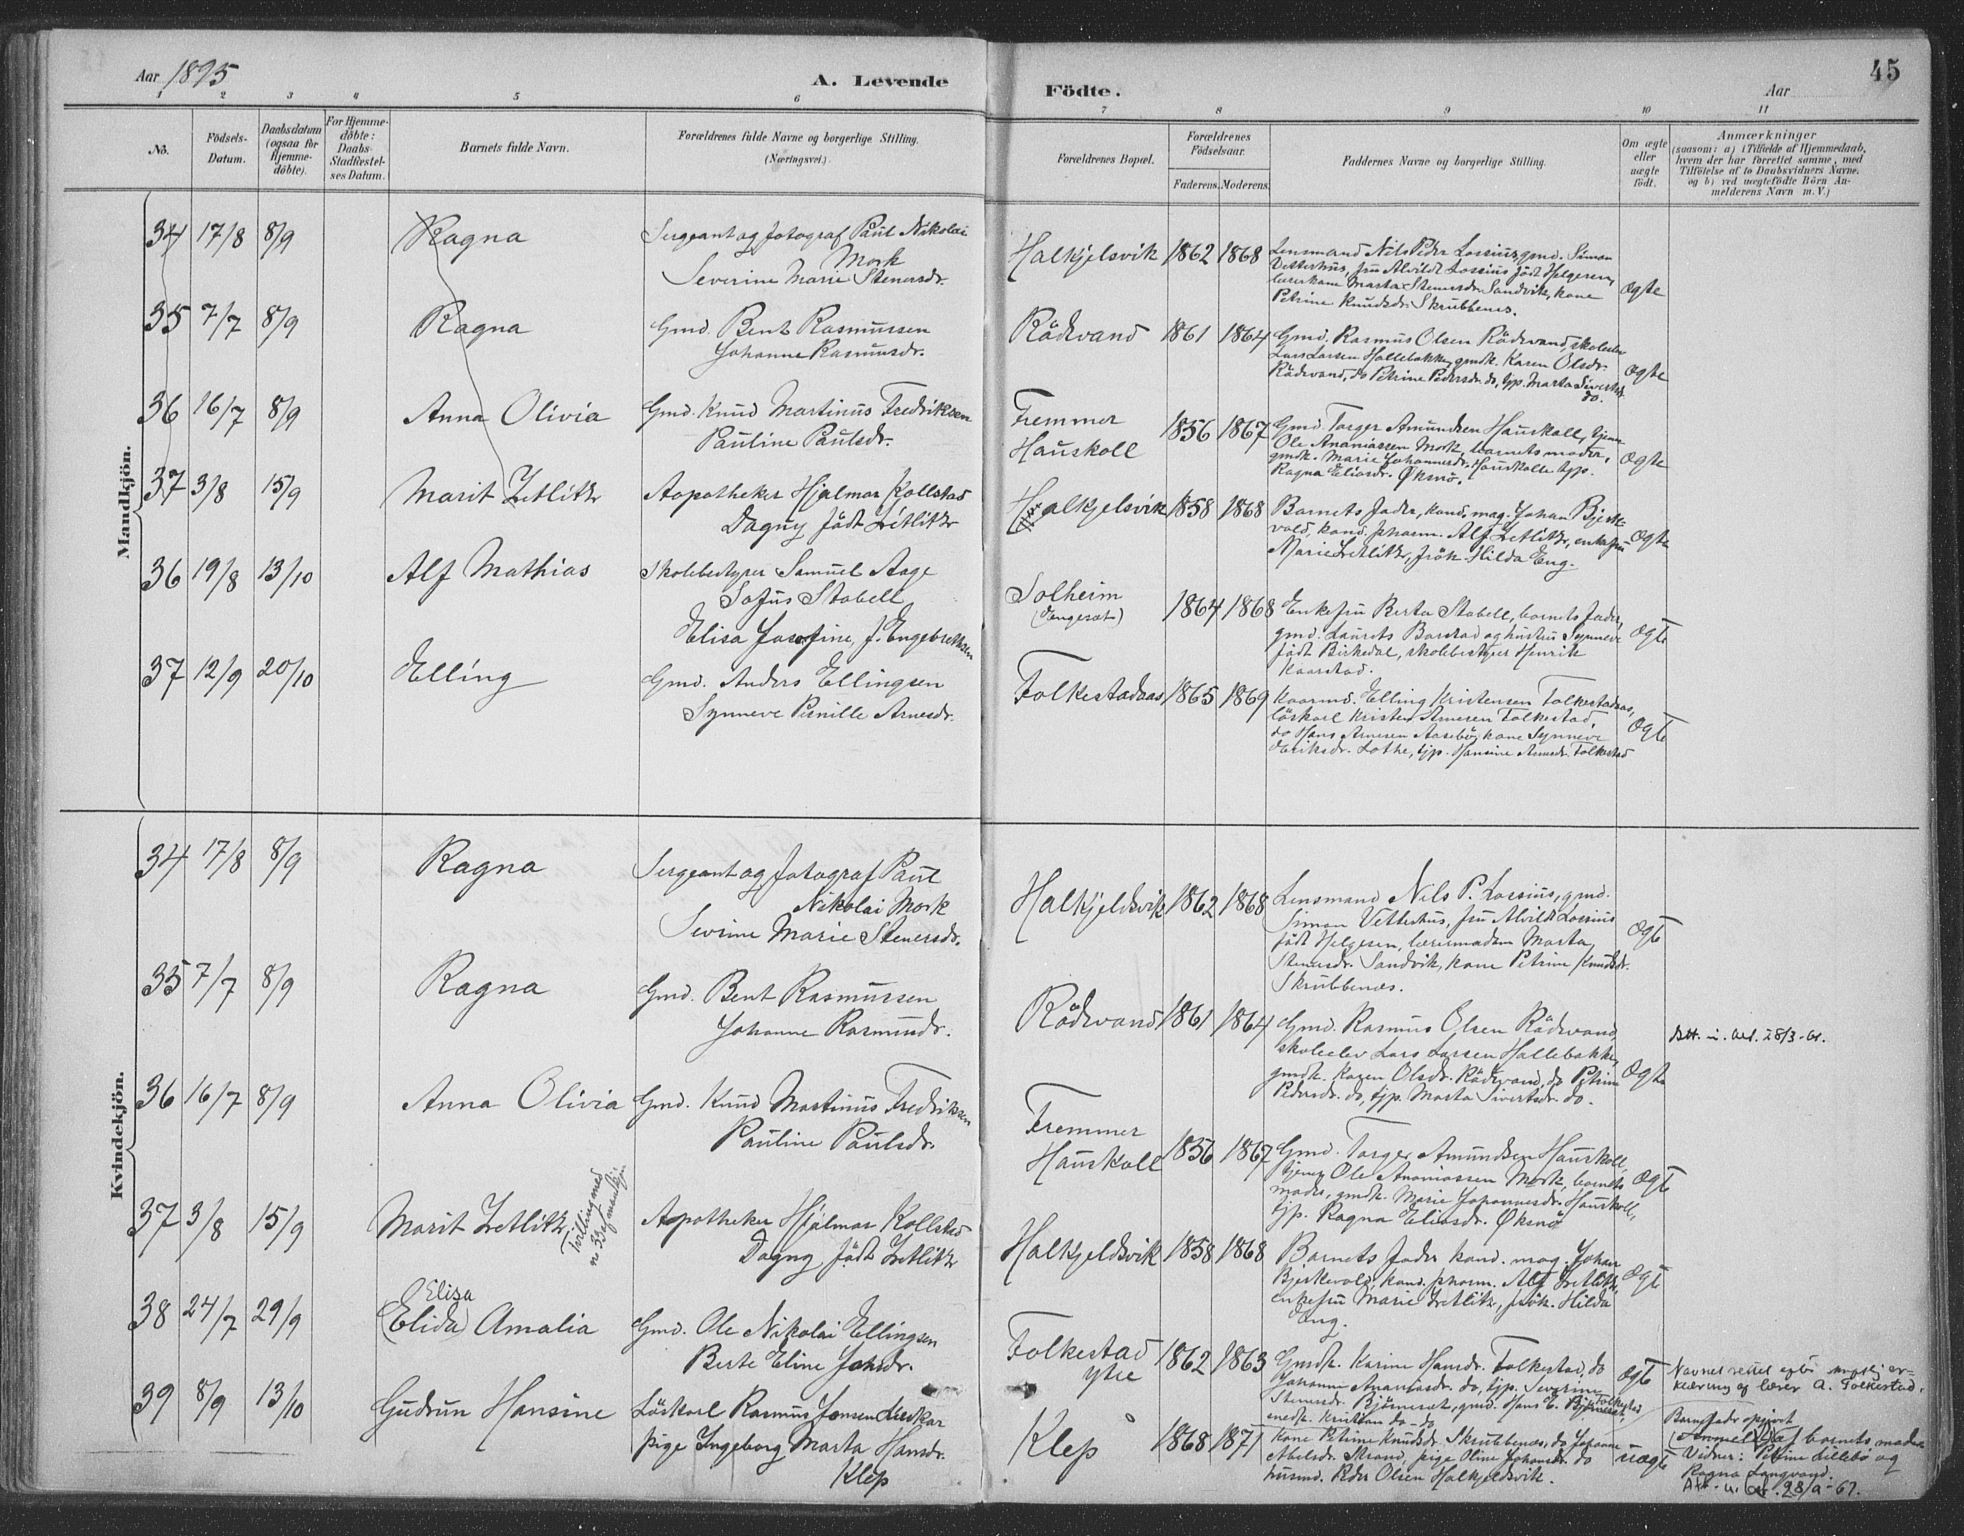 Aar 1895
A. Levende
Födte.
Aar
45
1 2 3 4 5 6 7 8 9 10 11
No.
Födsels-
Datum.
Daabsdatum
(ogsaa for
Hjemme-
döbte).
For Hjemme-
döbte:
Daabs-
Stadfestel-
ses Datum.
Barnets fulde Navn.
Forældrenes fulde Navne og borgerlige Stilling.
(Næringsvei.)
Forældrenes Bopæl.
Forældrenes
Födselsaar.
Faderens. Moderens.
Faddernes Navne og borgerlige Stilling.
Om ægte
eller
uægte
födt.
Anmærkninger
(saasom: a) i Tilfælde af Hjemmedaab,
hvem der har forrettet samme, med
Tilföielse af to Daabsvidners Navne.
og b) ved uægtefödte Börn An-
melderens Navn m. V.)
Mandkjön.
34 17/8 8/9 Ragna
Sergeant og fotograf Paul Nikolai
Mork
Severine Marie Stenersdr.
Halkjelsvik 1862 1868
Lensmand Nils Peder Lossius, gmd. Simon
Vetterhus, fru Alvilde Lossius födt Helgesen,
lærerkone Marta Stenersdr. Sandvik, kone
Petrine Knudsdr. Skrubbenes.
Ægte
35 7/7 8/9 Ragna
Gmd. Bent Rasmussen
Johanne Rasmusdr.
Rödvand 1861 1864
Gmd. Rasmus Olsen Rödvand, skoleelev
Lars Larsen Hallebakke, gmdk. Karen Olsdr.
Rödvand, do Petrine Pedersdr. do, tjp. Marta Sivertsdr.
do.
Ægte
36 16/7 8/9 Anna Olivia
Gmd. Knud Martinus Fredriksen
Pauline Paulsdr.
Fremmer
Hauskoll
1856 1867
Gmd. Torger Amundsen Hauskoll, tjener
Ole Ananiassen Mork, barnets moder,
gmdk. Marie Johannesdr. Hauskoll, tjp.
Ragna Eliasdr. Øksnö.
Ægte
37 3/8 15/9 Marit Zetlitz
Aopotheker Hjalmar Kollstad
Dagny födt Zetlitz
Halkjelsvik 1858 1868
Barnets fader, kand. mag. Johan Bjerke-
vold, kand. pharm. Alf Zetlitz, enkefru
Marie Zetlitz, frök. Hilda Eng.
Ægte
36 19/8 13/10 Alf Mathias
Skolebestyrer Samuel Aage
Sofus Stabell
Elisa Josefine, f. Engebretsen
Solheim
(Engeset)
1864 1868
Enkefru Berta Stabell, barnets fader,
gmd. Laurits Barstad og hustru Synneve
födt Birkedal, skolebestyrer Henrik
Kaarstad.
Ægte
37 12/9 20/10 Elling
Gmd. Anders Ellingsen
Synneve Pernille Arnesdr.
Folkestadaas 1865 1869
Kaarmd. Elling Kristensen Folkestadaas,
löskarl Kristen Arnesen Folkestad,
do Hans Arnesen Aasebö, kone Synneve
Eriksdr. Lothe, tjp. Hansine Arnesdr. Folkestad
Ægte
Kvindekjön.
34 17/8 8/9 Ragna
Sergeant og fotograf Paul
Nikolai Mork
Sevrine Marie Stenersdr.
Halkjeldsvik 1862 1868
Lensmand Nils P. Lossius, gmd.
Simon Vetterhus, fru Alvilde Lossius
födt Helgesen, lærermadam Marta
Stenersdr. Sandvik, kone Petrine Knudsdr.
Skrubbenes.
Ægte
35 7/7 8/9 Ragna
Gmd. Bent Rasmussen
Johanne Rasmusdr.
Rödvand 1861 1864
Gmd. Rasmus Olsen Rödvand,
skoleelev Lars Larsen Hallebakke,
gmdk. Karen Olsdr. Rödvand, do Petrine
Pedersdr. do, tjp. Marta Sivertsdr. do.
Ægte
Att. u. utf. 28/3-61.
36 16/7 8/9 Anna Olivia
Gmd. Knud Martinus Fredriksen
Pauline Paulsdr.
Fremmer
Hauskoll
1856 1867
Gmd. Torger Amundsen Hauskoll,
tjener Ole Ananiassen Mork, barnets
moder, gmdk. Marie Johannesdr. Hauskoll,
tjp. Ragna Eliasdr. Øksnö
Ægte
37 3/8 15/9 Marit Zetlitz
Tvilling med
no 33 af mandkjön
Apotheker Hjalmar Kollstad
Dagny födt Zetlitz
Halkjeldsvik 1858 1868
Barnets fader kand. mag. Johan
Bjerkevold, kand. pharm. Alf Zetlitz,
enkefru Marie Zetlitz, frök. Hilda
Eng.
Ægte
38 24/7 29/9
Elisa
(Elida) Amalia
Gmd. Ole Nikolai Ellingsen
Berte Eline Johsdr.
Folkestad
ytre
1862 1863
Gmdk. Karine Hansdr. Folkestad, do
Johanne Ananiasdr. do, tjp. Severine
Stenersdr. Björneset, gmd. Hans E. Folkestad
Ægte
Navnet rettet efter mottaj er-
klæring af lærer A. Folkestad.
39 8/9 13/10 Gudrun Hansine
Löskarl Rasmus Jonsen
pige Ingeborg Marta Hansdr.
Klep
Klep 1868 1871
Kone Petrine Knudsdr. Skrubbenes, do Johanne
Abelsdr. Strand, pige Oline Johansdr. do
husmd. Peder Olsen Halkjeldsvik.
uægte
Barnefader opgivet
Anmeldt af barnets moder
Vidner: Petrine Lillebö og
Ragna Langvand.
Att. u. utf. 28/9-61.